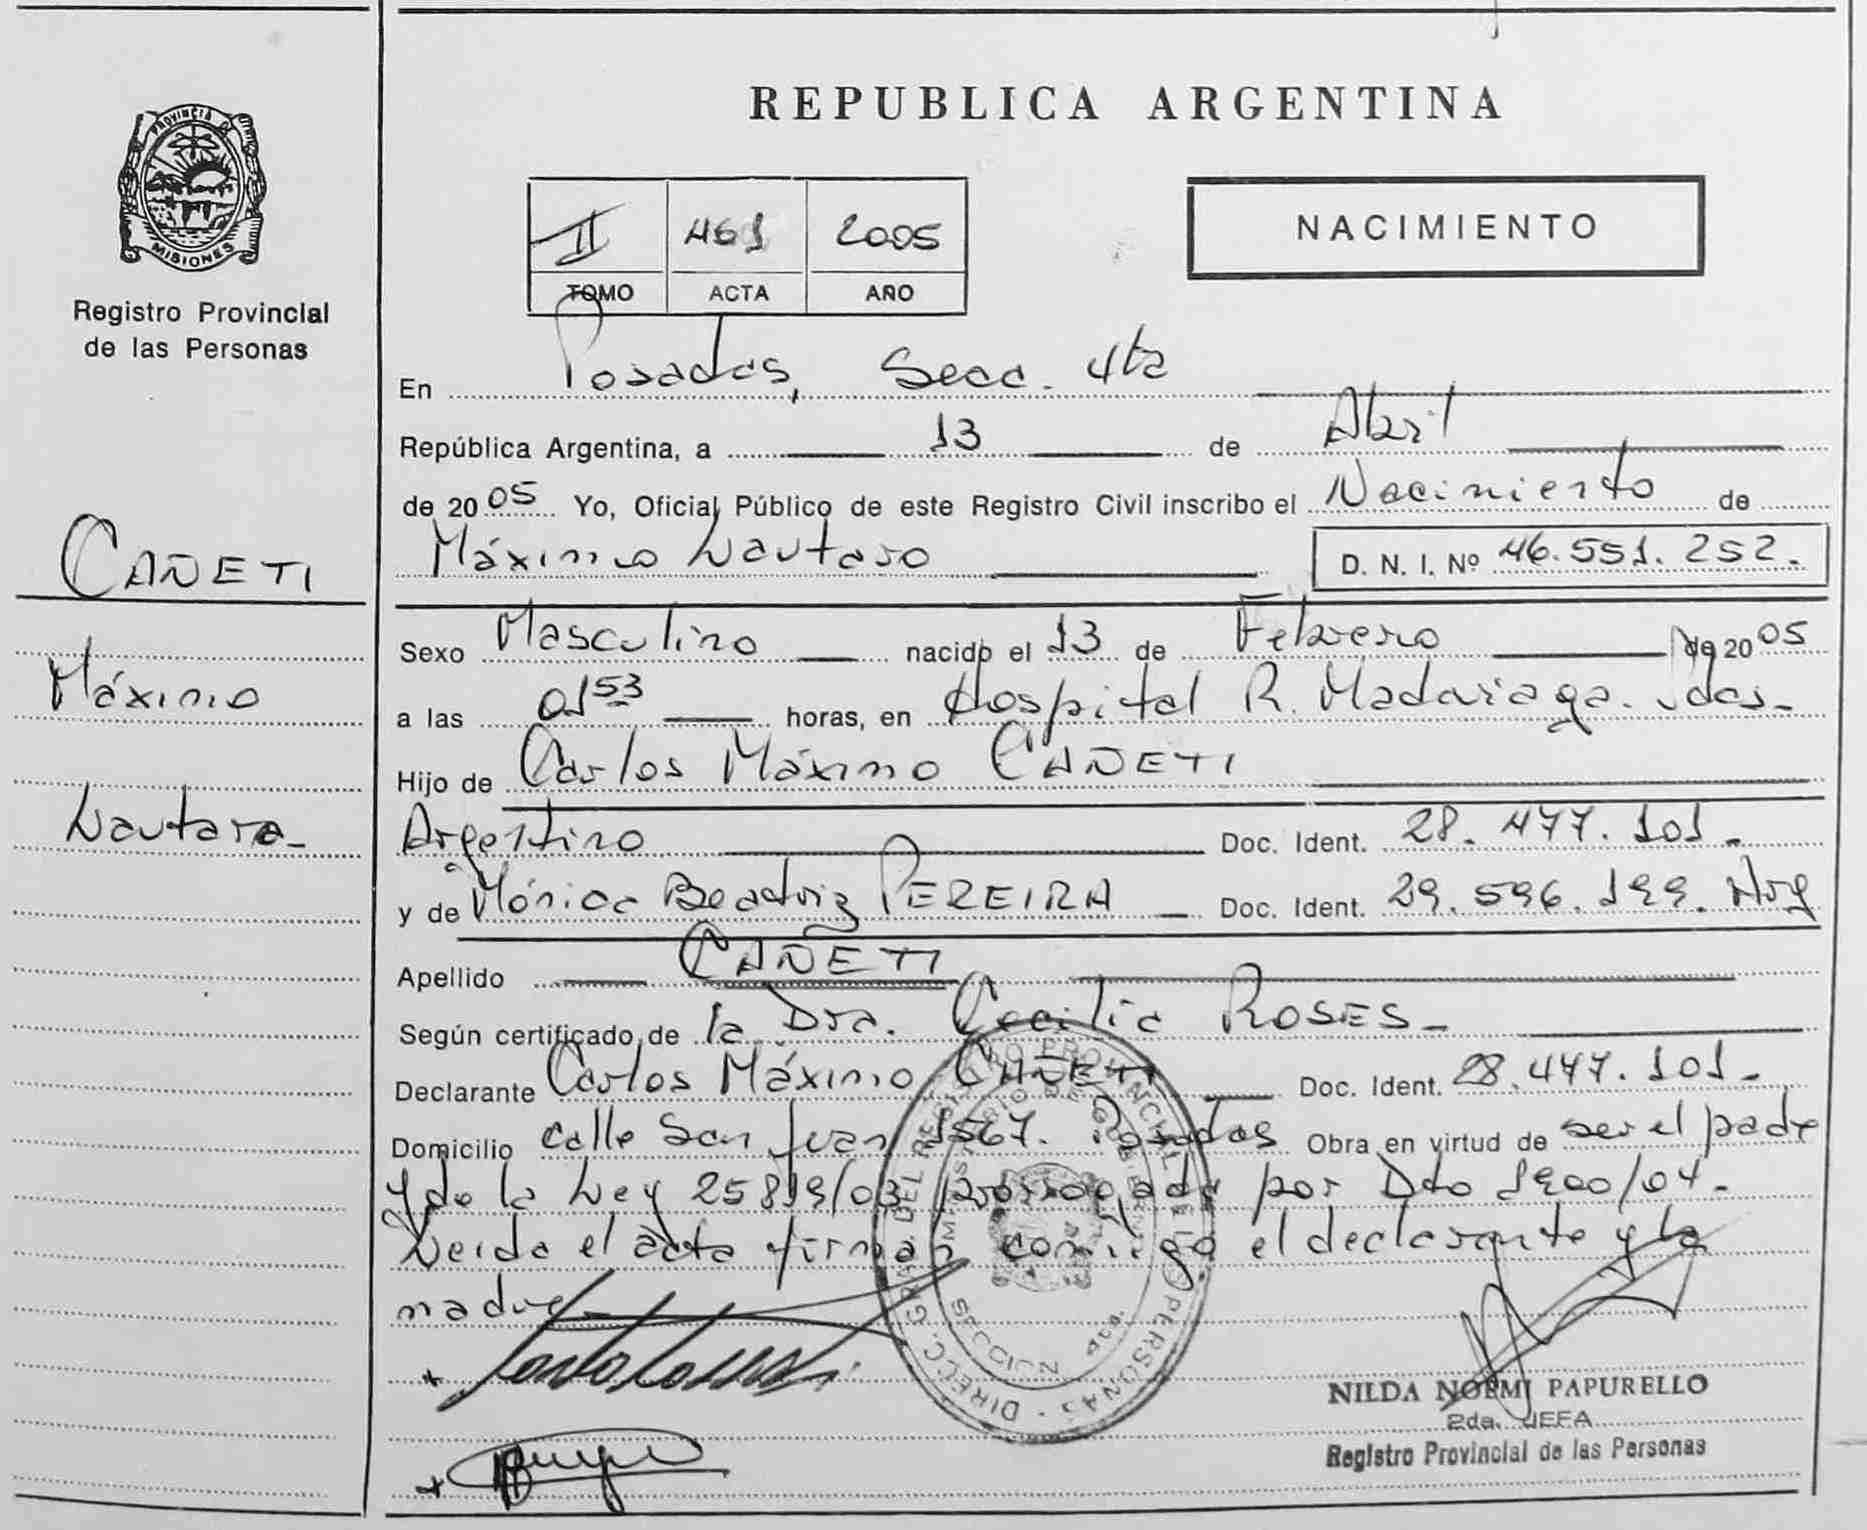 PROVINCIA DE
MISIONES
Registro Provincial
de las Personas
CAÑETI
Máximo
Lautaro-
REPUBLICA ARGENTINA
II 461 2005
TOMO ACTA AÑO
NACIMIENTO
En Posadas, Secc. 4ta
República Argentina, a 13 de Abril
de 2005 Yo, Oficial Público de este Registro Civil inscribo el Nacimiento de
Máximo Lautaro D. N. I. Nº 46.551.252.
Sexo Masculino nacido el 13 de Febrero de 2005
a las 01 53 horas, en Hospital R. Madariaga. Pdas-
Hijo de Carlos Máximo CAÑETI
Argentino Doc. Ident. 28.477.101-
y de Mónica Beatriz PEREIRA Doc. Ident. 29.596.199. Arg
Apellido CAÑETI
Según certificado de la Dra. Cecilia ROSES-
Declarante Carlos Máximo CAÑETI Doc. Ident. 28.477.101-
Domicilio calle San Juan 1567. Posadas Obra en virtud de ser el padre
y de la Ley 25819/03 prorrogada por Dto 1900/04-
Leida el acta firman conmigo el declarante y la
madre-
DIRECC. GRAL. DEL REGISTRO PROVINCIAL DE LAS PERSONAS
MINISTERIO DE GOBIERNO
SECCION 4ta.
NILDA NOEMI PAPURELLO
2da. JEFA
Registro Provincial de las Personas